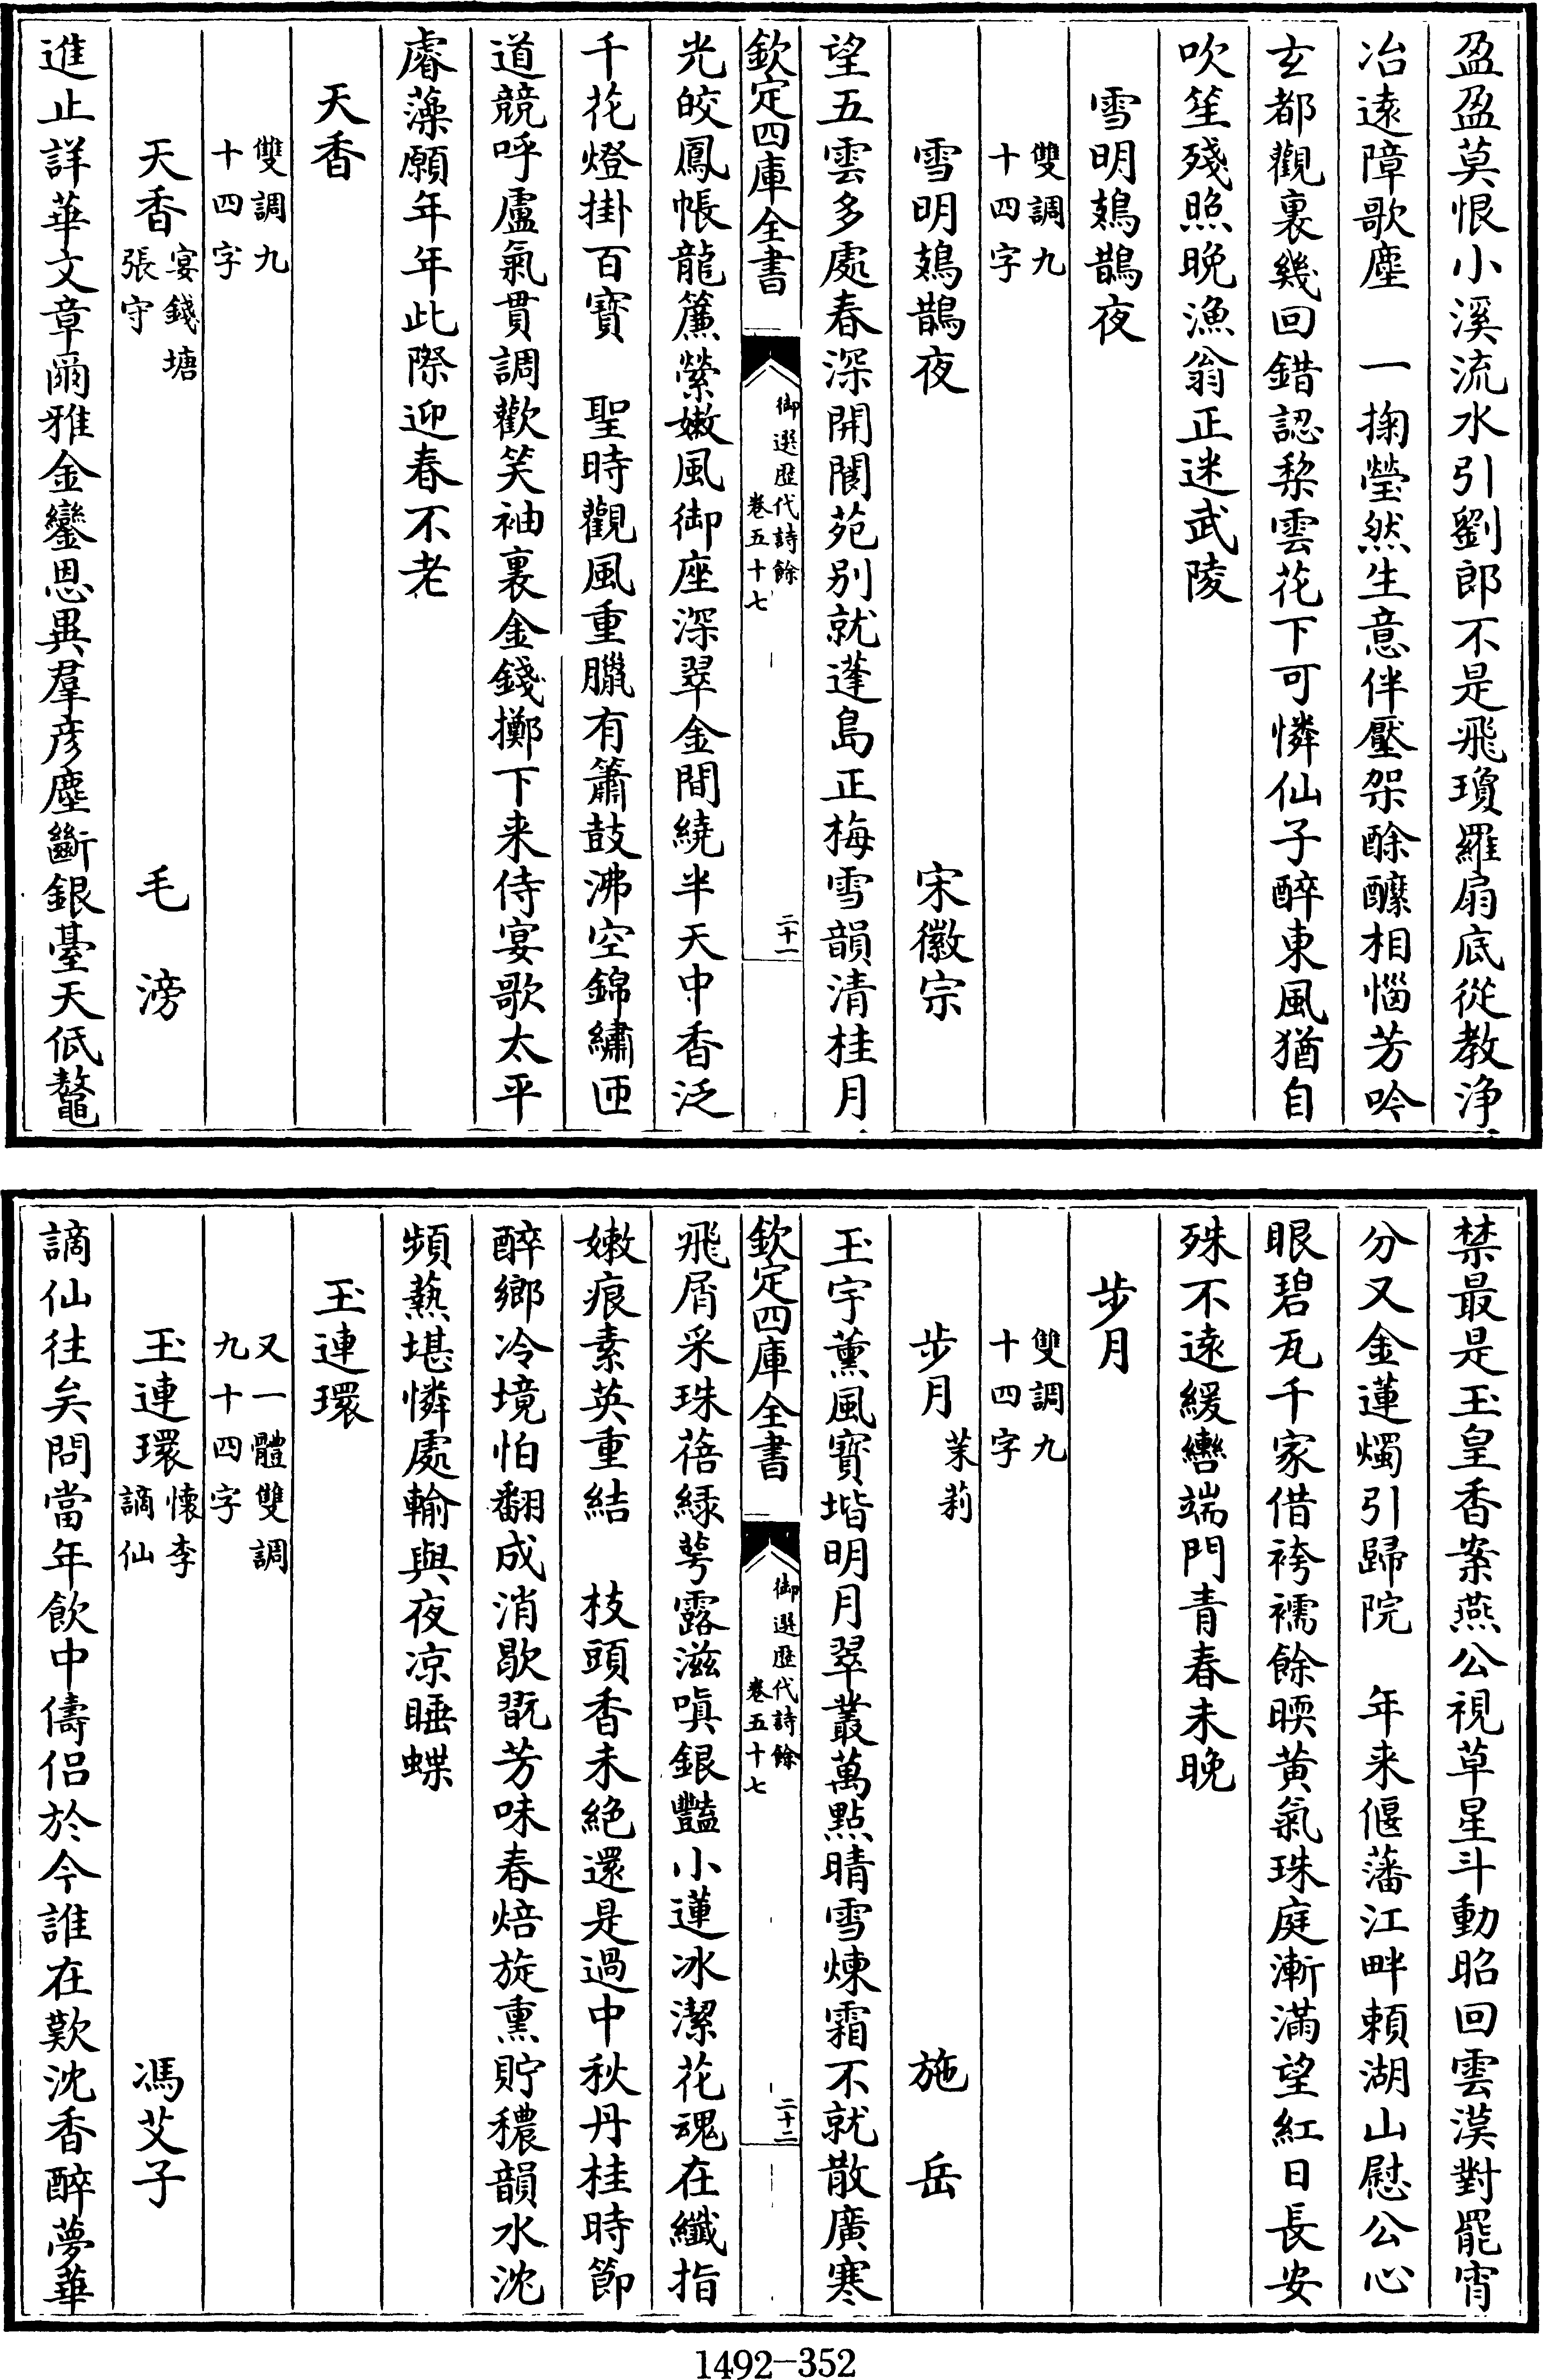 盈盈莫恨小溪流水引劉郎不是飛瓊羅扇底從教浄
冶遠障歌塵　一掬瑩然生意伴壓架酴醿相惱芳吟
玄都觀裏幾回錯認棃雲花下可憐仙子醉東風猶自
吹笙殘照晚漁翁正迷武陵
雪明鳷鵲夜
雙調九
十四字
雪明鳷鵲夜　宋徽宗
望五雲多處春深開閬苑别就蓬島正梅雪韻清桂月
欽定四庫全書
御選歷代詩餘
卷五十七
二十一
光皎鳳帳龍簾縈嫩風御座深翠金間繞半天中香泛
千花燈掛百寶　聖時觀風重臘有簫鼓沸空錦繡匝
道競呼盧氣貫調歡笑袖裏金錢擲下来侍宴歌太平
睿藻願年年此際迎春不老
天香
雙調九
十四字
天香
宴錢塘
張守
毛　滂
進止詳華文章爾雅金鑾恩異羣彦塵斷銀臺天低鼇
禁最是玉皇香案燕公視草星斗動昭回雲漢對罷宵
分又金蓮燭引歸院　年来偃藩江畔頼湖山慰公心
眼碧瓦千家借袴襦餘暖黄氣珠庭漸滿望紅日長安
殊不遠緩轡端門青春未晚
步月
雙調九
十四字
步月茉莉　施　岳
玉宇薰風寶堦明月翠叢萬點晴雪煉霜不就散廣寒
欽定四庫全書
御選歷代詩餘
卷五十七
二十二
飛屑采珠蓓緑萼露滋嗔銀豔小蓮冰潔花魂在纖指
嫩痕素英重結　枝頭香未絶還是過中秋丹桂時節
醉鄉冷境怕翻成消歇翫芳味春焙旋熏貯穠韻水沈
頻爇堪憐處輸與夜凉睡蝶
玉連環
又一體雙調
九十四字
玉連環
懷李
謫仙
馮艾子
謫仙往矣問當年飲中儔侣於今誰在歎沈香醉夢華
1492—352